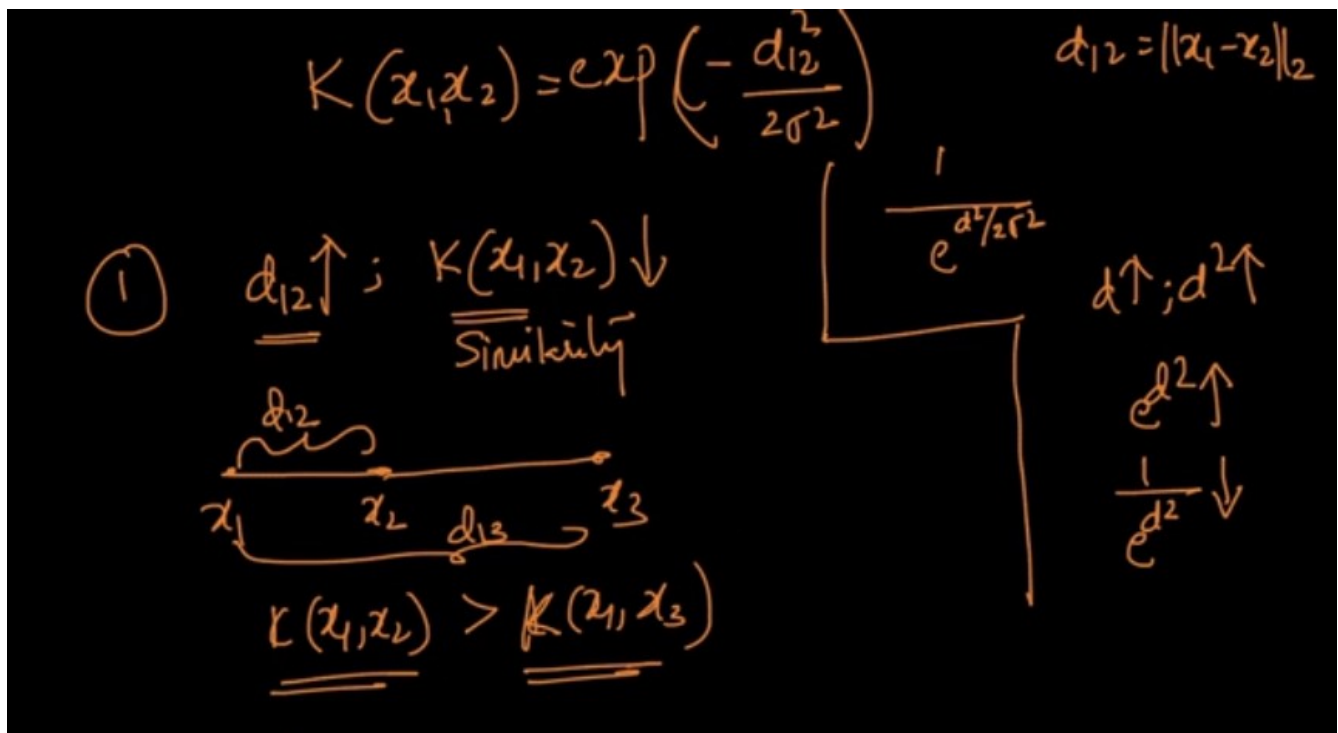 K(x₁,x₂) = exp(-d₁₂²/2σ²)
d₁₂ = ||x₁-x₂||₂
1/e^(d²/2σ²)
① d₁₂↑ ; K(x₁,x₂)↓
Similarity
d↑ ; d²↑
e^d²↑
1/e^d² ↓
d₁₂
x₁ x₂ x₃
d₁₃
K(x₁,x₂) > K(x₁,x₃)